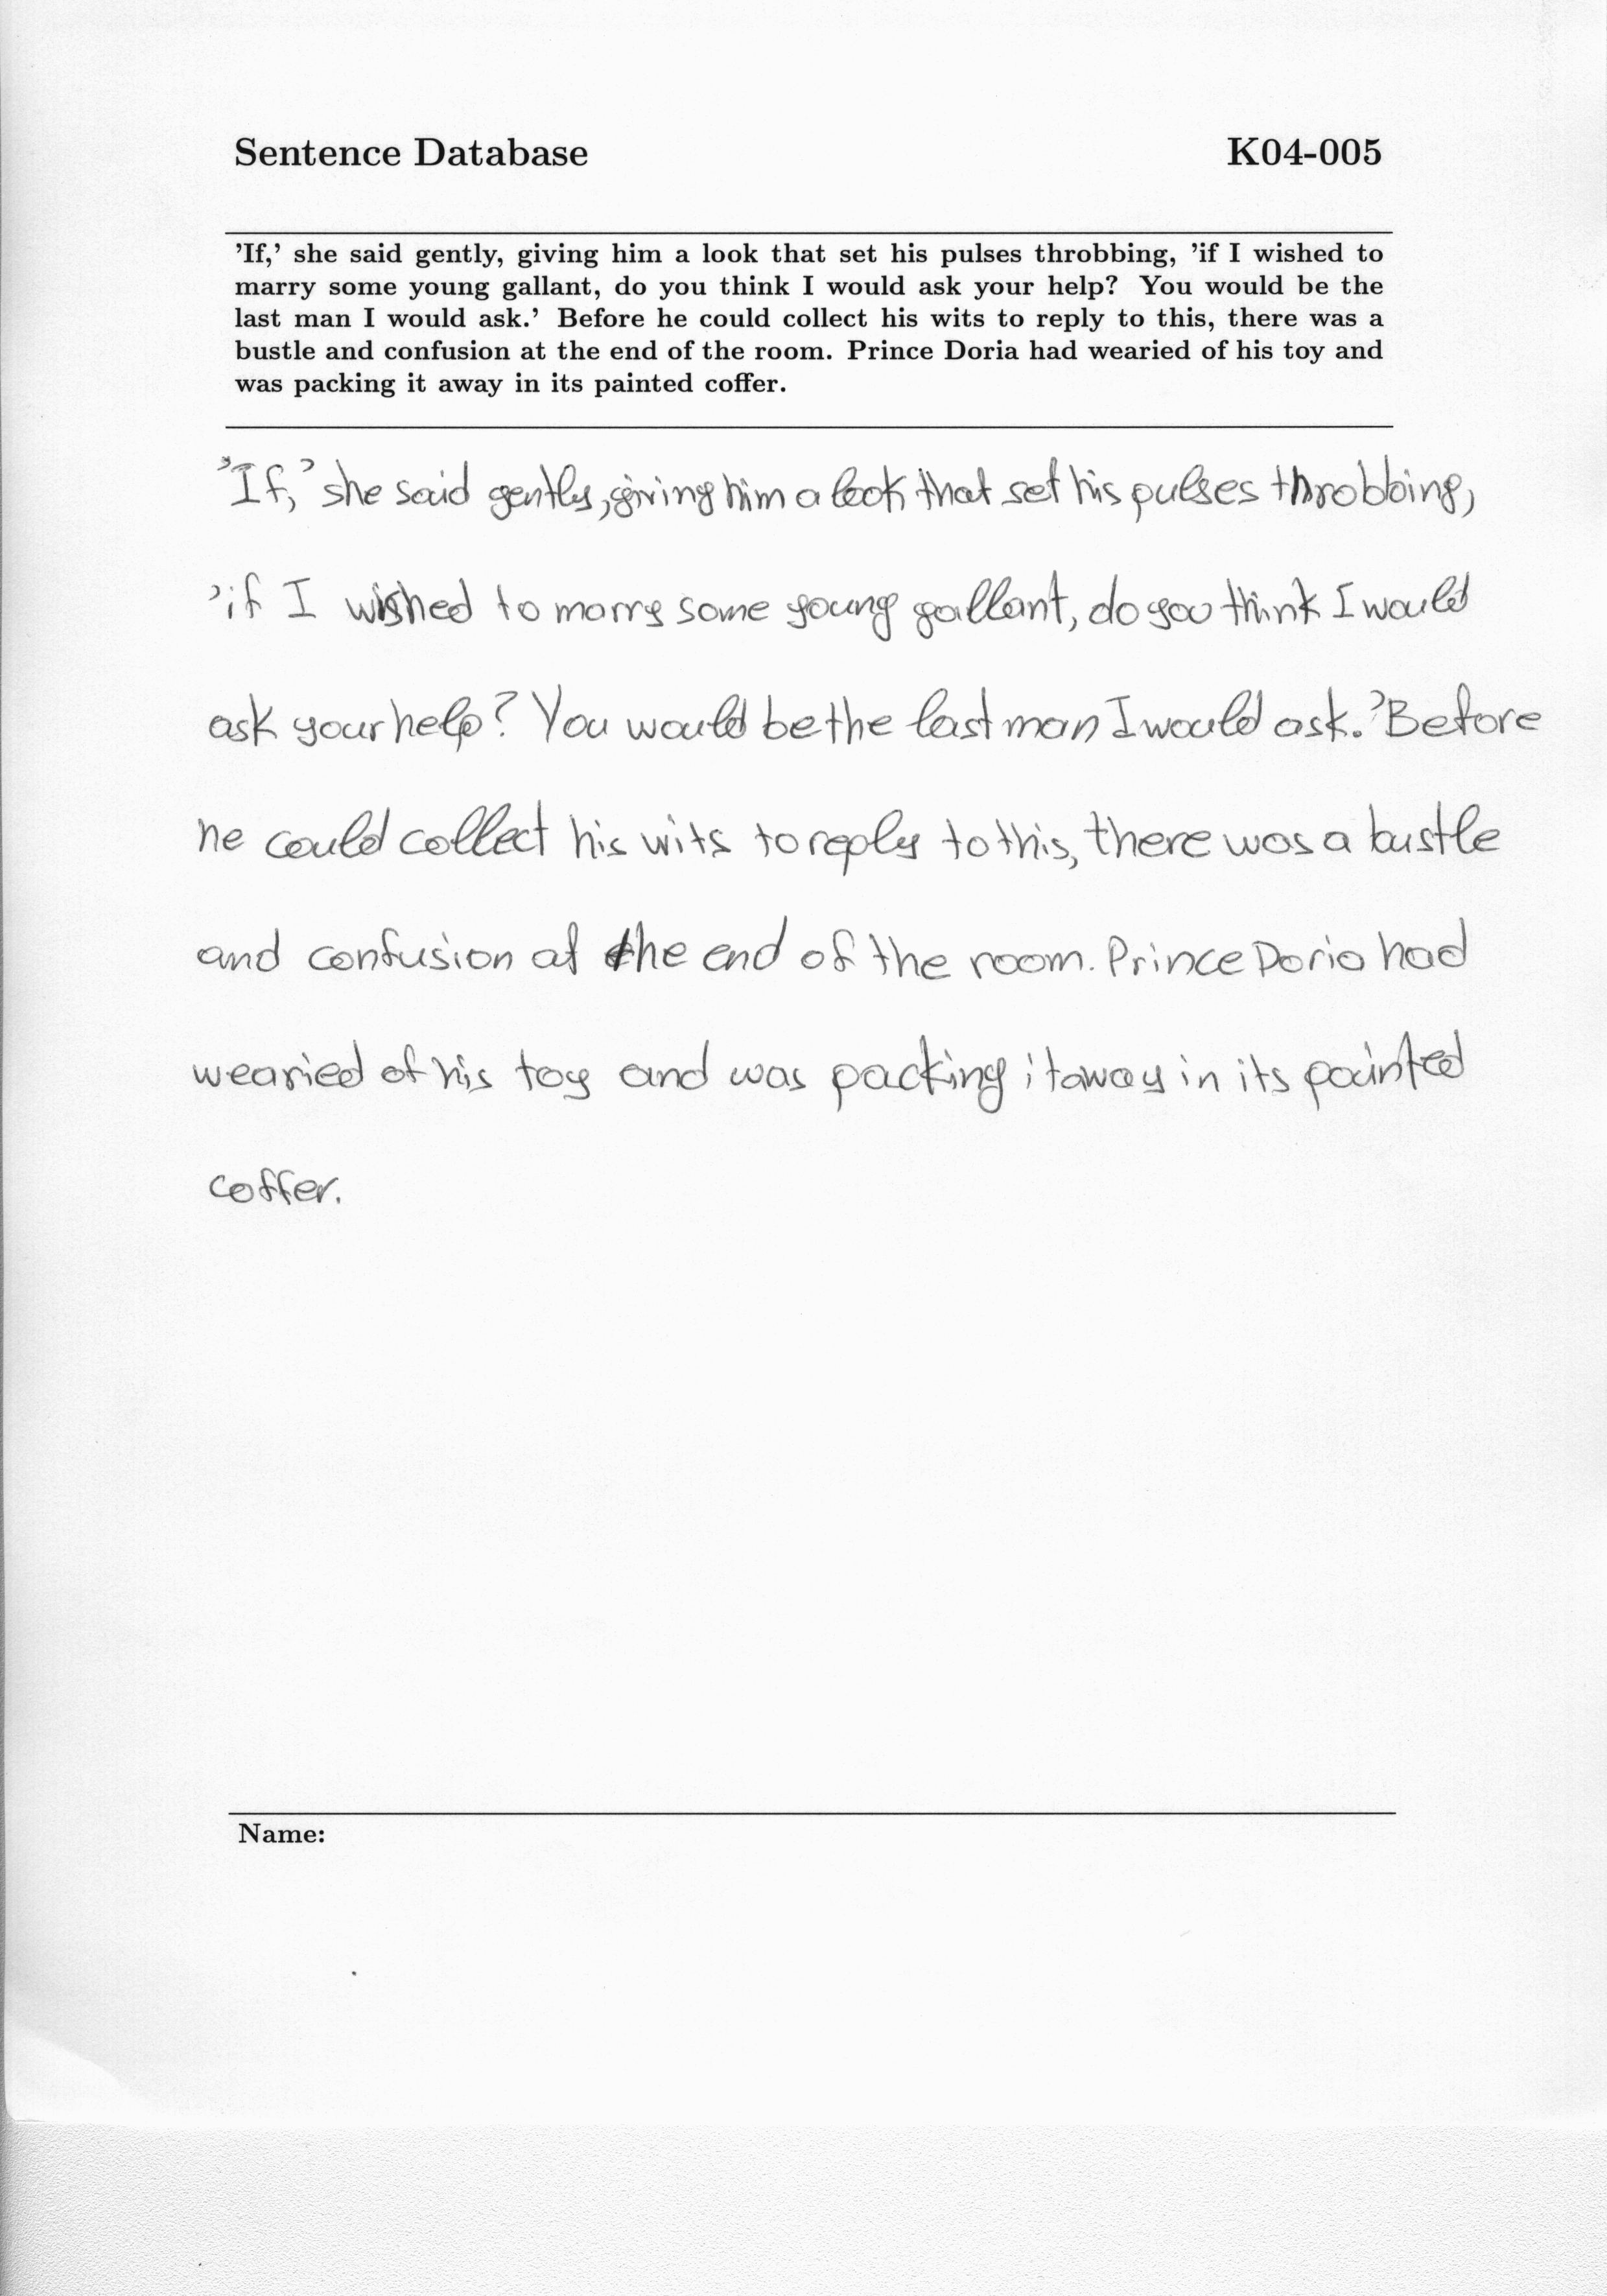 Sentence Database K04-005
'If,' she said gently, giving him a look that set his pulses throbbing, 'if I wished to
marry some young gallant, do you think I would ask your help? You would be the
last man I would ask.' Before he could collect his wits to reply to this, there was a
bustle and confusion at the end of the room. Prince Doria had wearied of his toy and
was packing it away in its painted coffer.
'If,' she said gently, giving him a look that set his pulses throbbing,
'if I wished to marry some young gallant, do you think I would
ask your help? You would be the last man I would ask.' Before
he could collect his wits to reply to this, there was a bustle
and confusion at the end of the room. Prince Doria had
wearied of his toy and was packing it away in its painted
coffer.
Name: